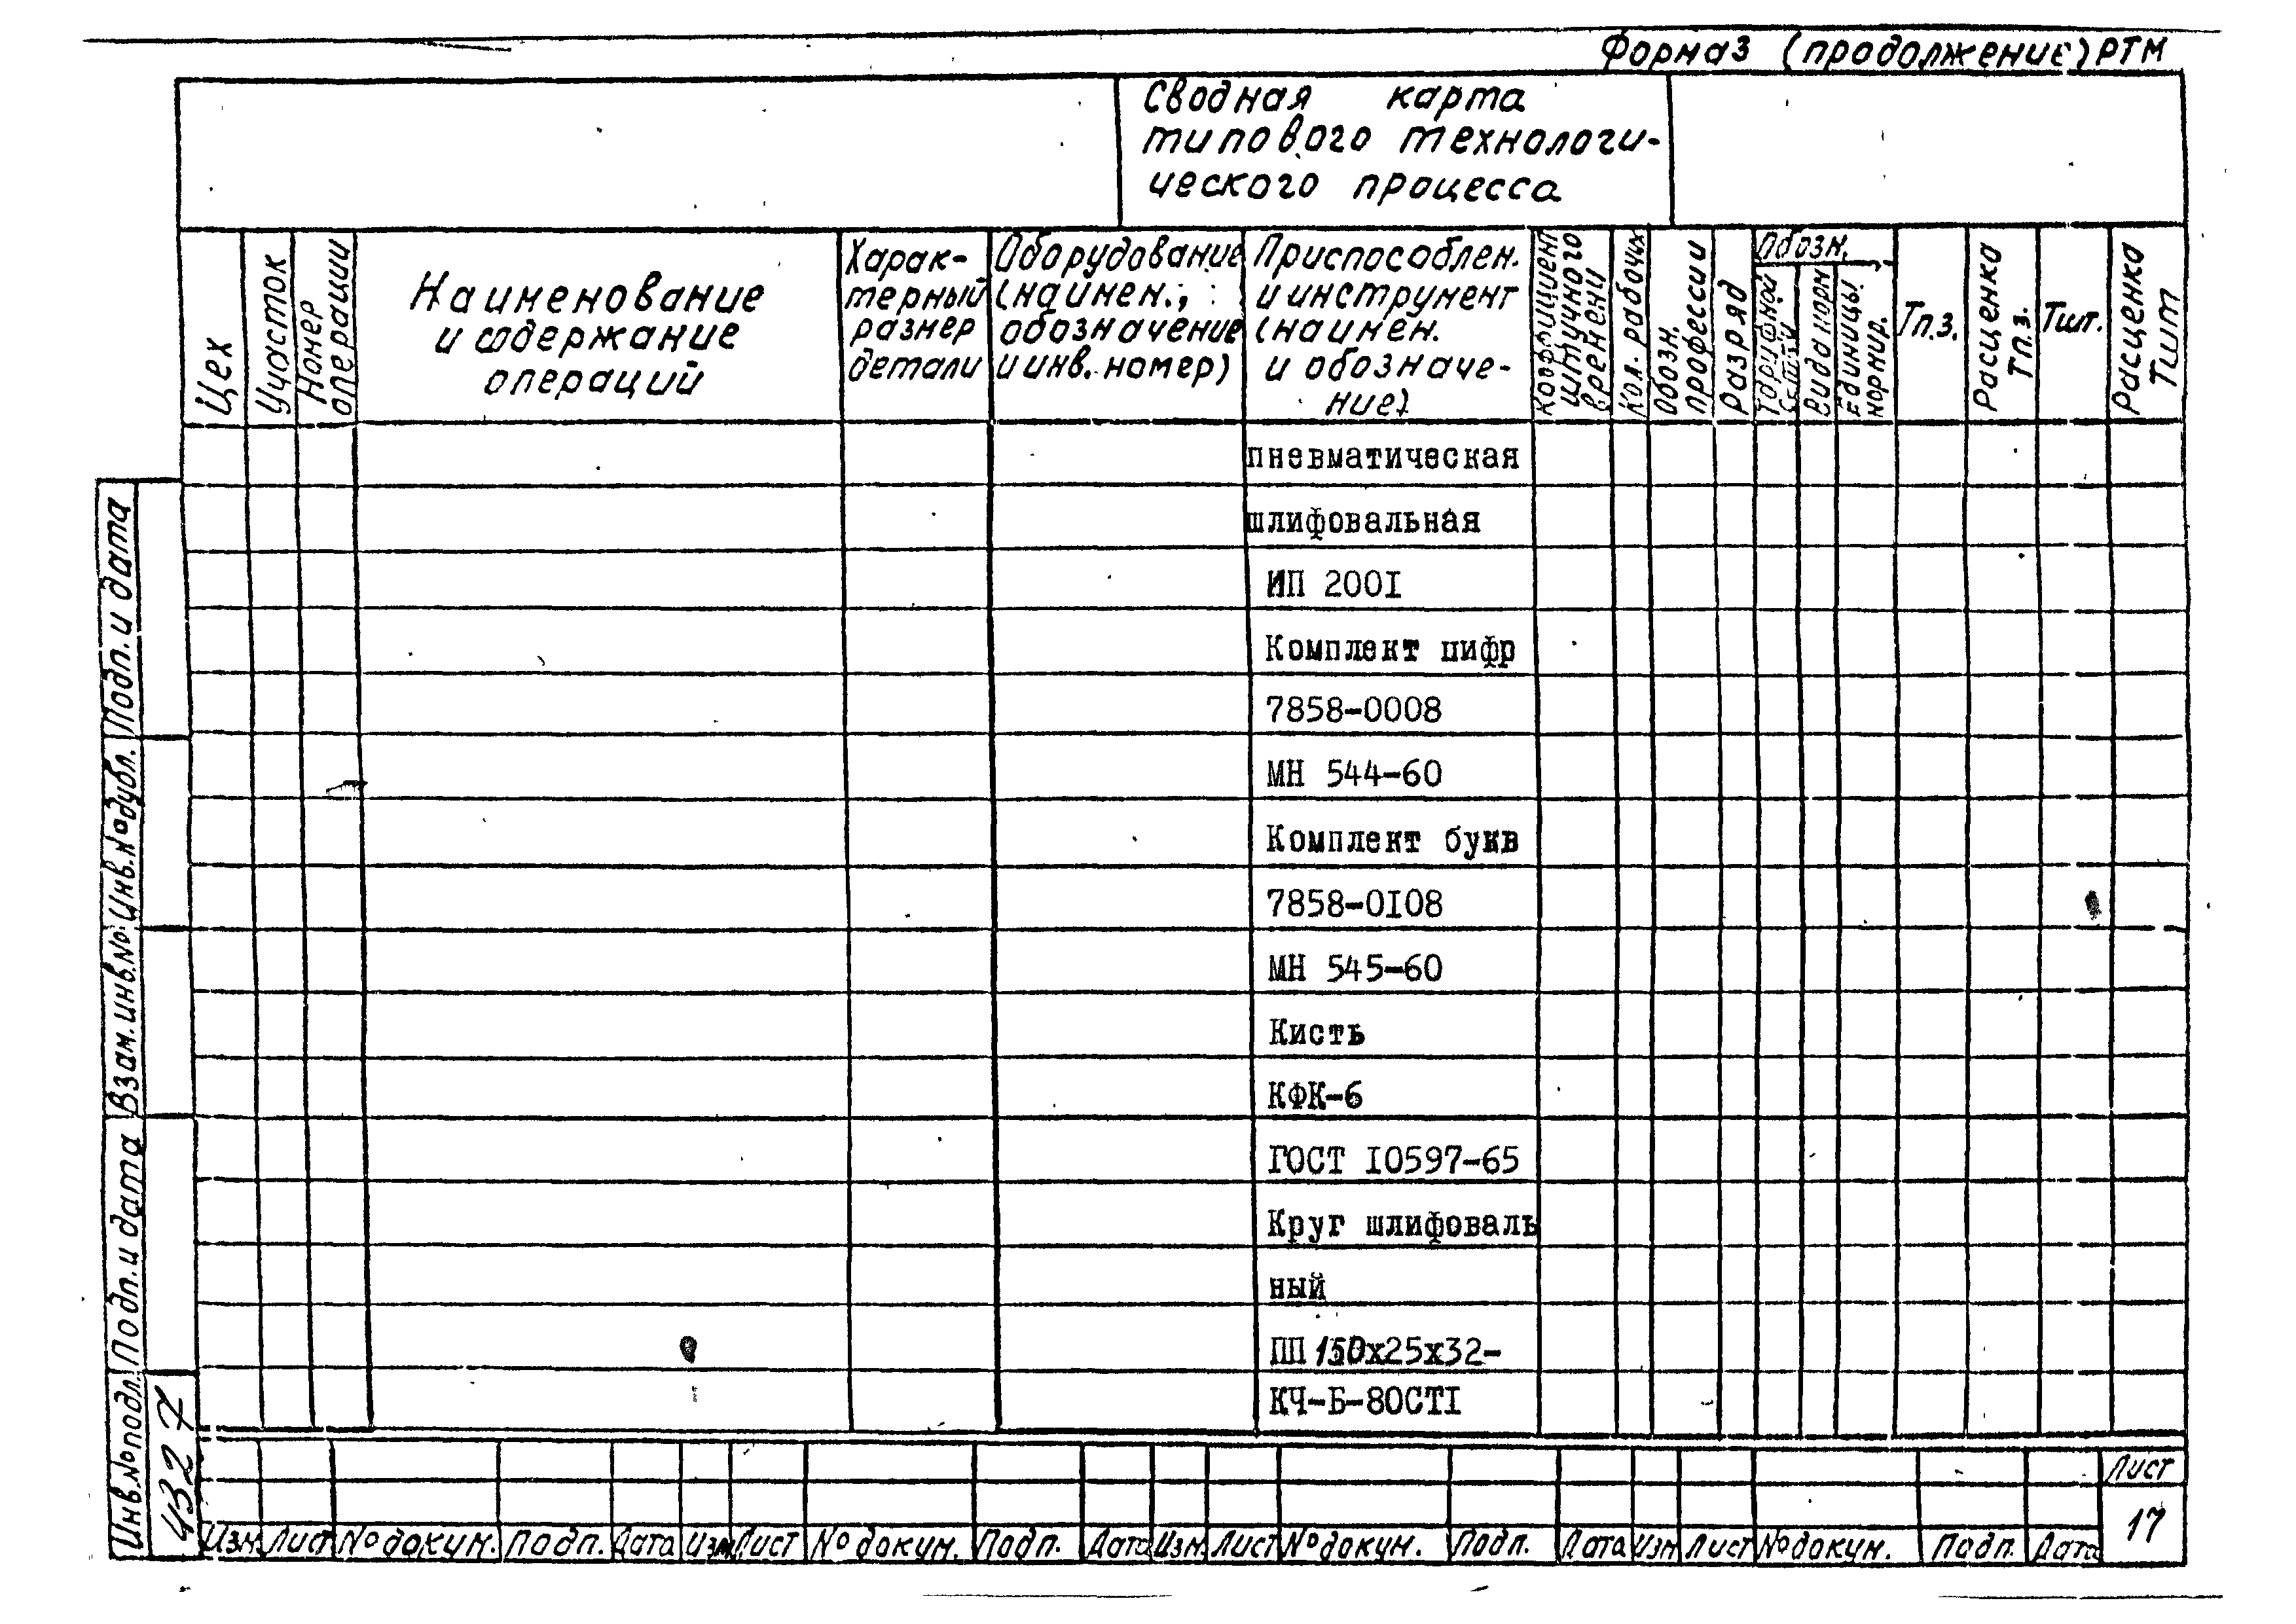 Форма3 (продолжение) РТМ
Сводная карта
типового технологи-
ческого процесса
Цех
Участок
Номер
операции
Наименование
и содержание
операций
Харак-
терный
размер
детали
Оборудование
(наимен.,
обозначение
и инв. номер)
Приспособлен.
и инструмент
(наимен.
и обозначе-
ние)
Коэффициент
штучного
времени
Кол. рабочих
Обозн.
профессии
Разряд
Обозн.
Тарифной
сетки
Вида норм
Единицы
нормир.
Тп.з.
Расценка
Тп.з.
Тшт.
Расценка
Тшт
пневматическая
шлифовальная
ИП 200I
Комплект цифр
7858-0008
МН 544-60
Комплект букв
7858-0I08
МН 545-60
Кисть
КФК-6
ГОСТ I0597-65
Круг шлифоваль
ный
ПП 150х25х32-
КЧ-Б-80СТI
Подп. и дата
Инв.№дубл.
Взам.инв.№
Подп. и дата
Инв.№подл.
4327
Изм Лист №докум. Подп. Дата Изм Лист №докум. Подп. Дата Изм Лист №докум. Подп. Дата Изм Лист №докум. Подп. Дата
Лист
17